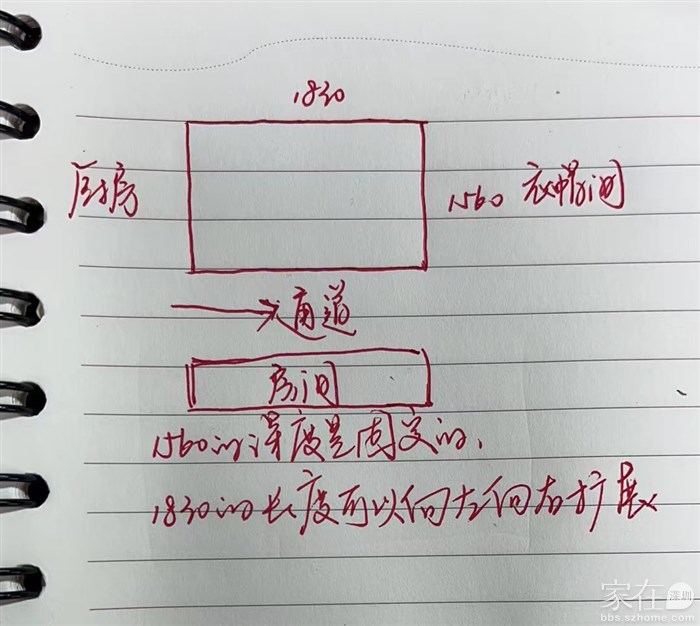 1830
厨房
1560 衣帽间
通道
房间
1560的深度是固定的,
1830的长度可以向左向右扩展
家在深圳
bbs.szhome.com